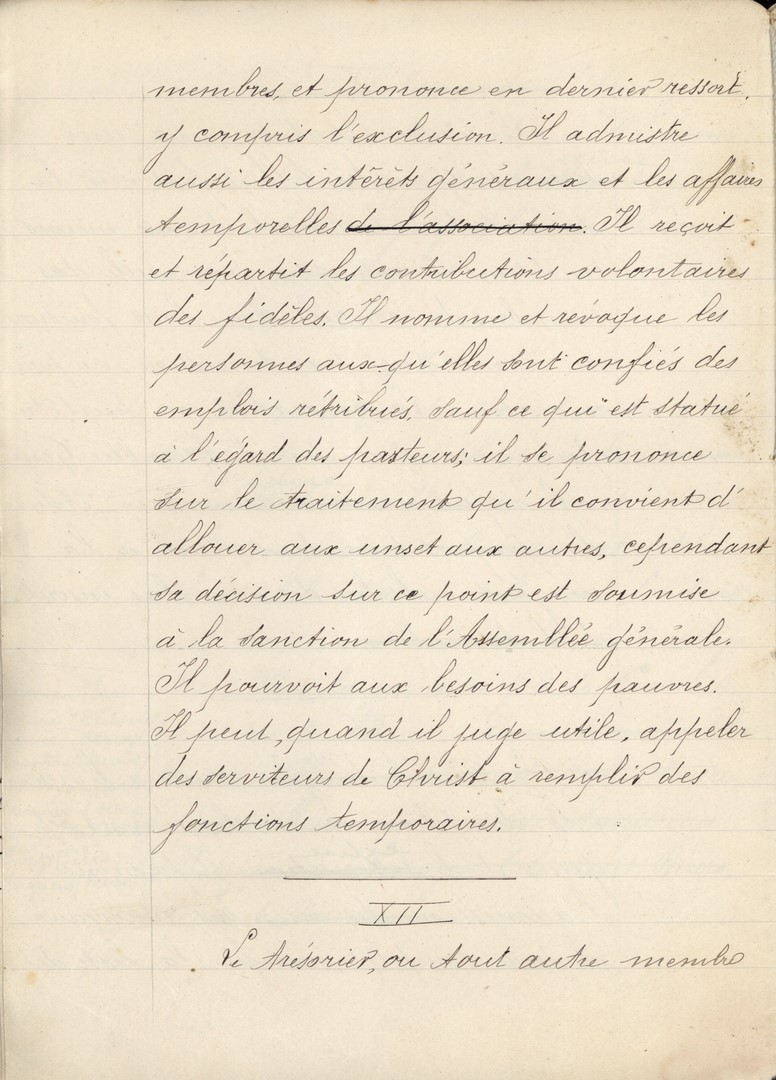 membres, et prononce en dernier ressort,
y compris l'exclusion. Il admistre
aussi les intérêts généraux et les affaires
temporelles de l'association. Il reçoit
et répartit les contributions volontaires
des fidèles. Il nomme et révoque les
personnes aux-qu'elles sont confiés des
emplois rétribués, sauf ce qui est statué
à l'égard des pasteurs; il se prononce
sur le traitement qu'il convient d'
allouer aux uns et aux autres, cependant
sa décision sur ce point est soumise
à la sanction de l'Assemblée générale.
Il pourvoit aux besoins des pauvres.
Il peut, quand il juge utile, appeler
des serviteurs de Christ à remplir des
fonctions temporaires.
XII
Le trésorier, ou tout autre membre